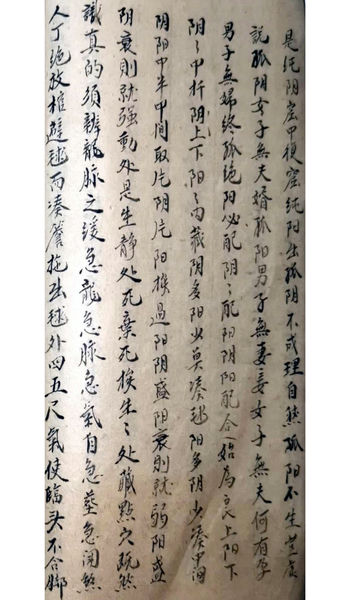 是純阴窟中復窟純阳生孤阴不成理自然孤阳不生豈虚
説孤阴女子無夫婿孤阳男子無妻妾女子無夫何有孕
男子無婦終孤絶阳必配阴〻配阳阴阳配合始為良上阳下
阴〻中折阴上下阳〻内藏阴多阳少莫凑毬阳多阴少凑中间
阴阳中半中间取片阴片阳挨過阳阴盛阳衰則就弱阳盛
阴衰則就强動处是生静处死棄死挨生〻处藏點穴既然
識真的须辨龍脉之缓急龍急脉急氣自急塟急闭煞
人丁绝放棺避毬而凑簷拖出毬外四五尺氣使臨头不合脚